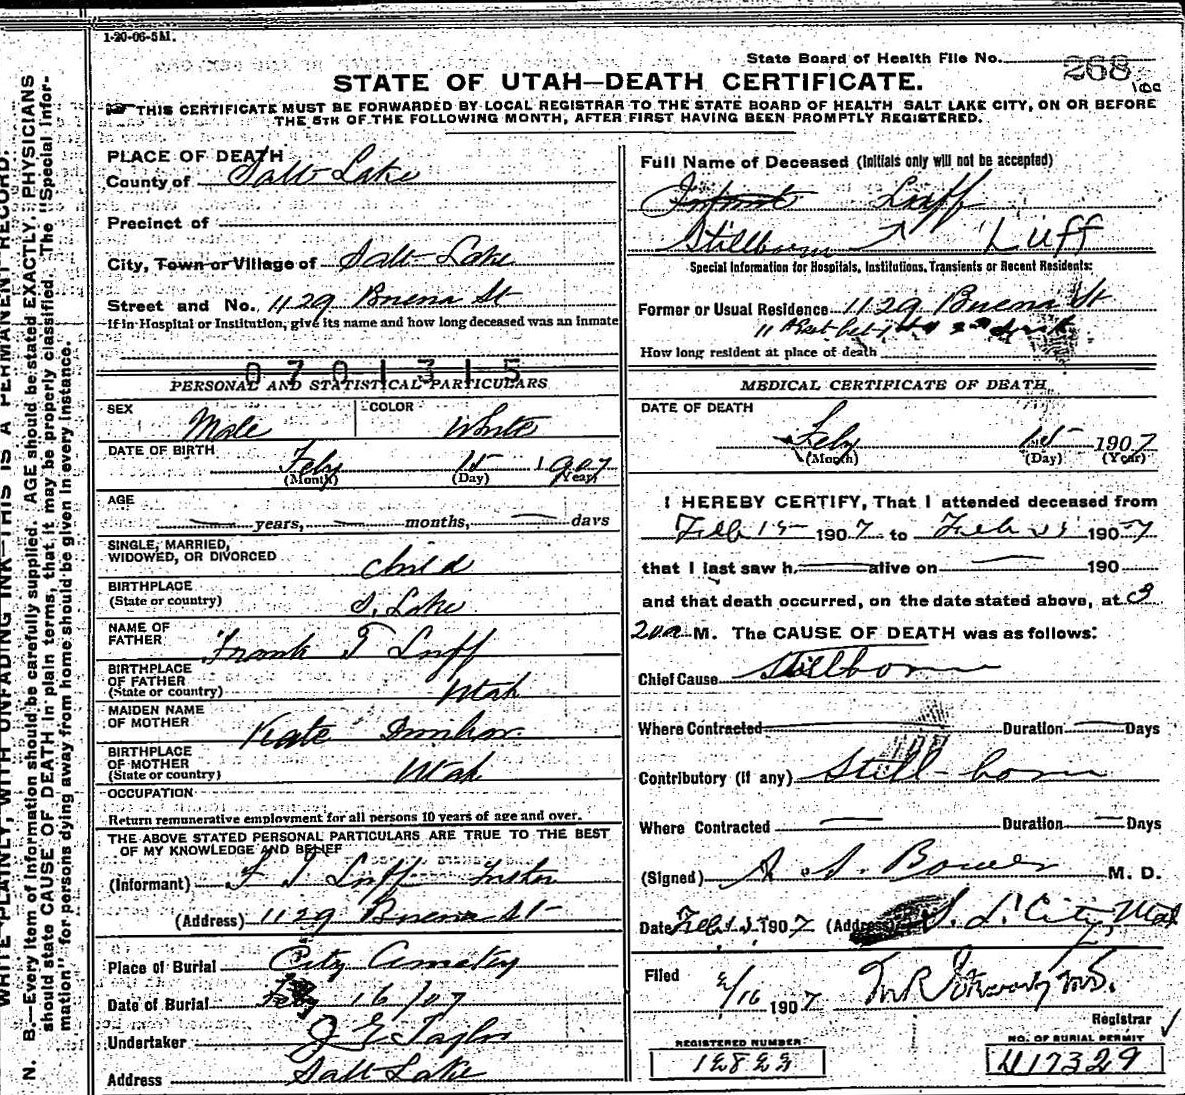 1-20-06-5M.
State Board of Health File No. 268
STATE OF UTAH—DEATH CERTIFICATE.
THIS CERTIFICATE MUST BE FORWARDED BY LOCAL REGISTRAR TO THE STATE BOARD OF HEALTH SALT LAKE CITY, ON OR BEFORE
THE 5TH OF THE FOLLOWING MONTH, AFTER FIRST HAVING BEEN PROMPTLY REGISTERED.
PLACE OF DEATH
County of Salt Lake
Precinct of
City, Town or Village of Salt Lake
Street and No. 1129 Buena St
If in Hospital or Institution, give its name and how long deceased was an inmate
0701315
PERSONAL AND STATISTICAL PARTICULARS
SEX Male COLOR White
DATE OF BIRTH Feby 15 1907
(Month) (Day) (Year)
AGE
years, months, days
SINGLE, MARRIED,
WIDOWED, OR DIVORCED child
BIRTHPLACE
(State or country) S. Lake
NAME OF
FATHER Frank T Luff
BIRTHPLACE
OF FATHER
(State or country) Utah
MAIDEN NAME
OF MOTHER Kate
BIRTHPLACE
OF MOTHER
(State or country) Utah
OCCUPATION
Return remunerative employment for all persons 10 years of age and over.
THE ABOVE STATED PERSONAL PARTICULARS ARE TRUE TO THE BEST
OF MY KNOWLEDGE AND BELIEF
(Informant) F T Luff
(Address) 1129 Buena St
Place of Burial City Cemetery
Date of Burial Feby 16/07
Undertaker Taylor
Address Salt Lake
Full Name of Deceased (Initials only will not be accepted)
Infant Luff
Stillborn Luff
Special Information for Hospitals, Institutions, Transients or Recent Residents:
Former or Usual Residence 1129 Buena St
How long resident at place of death
MEDICAL CERTIFICATE OF DEATH
DATE OF DEATH
Feby 15 1907
(Month) (Day) (Year)
I HEREBY CERTIFY, That I attended deceased from
Feb 15 1907 to Feb 15 1907
that I last saw h alive on 190
and that death occurred, on the date stated above, at 3
20a M. The CAUSE OF DEATH was as follows:
Chief Cause Stillborn
Where Contracted Duration Days
Contributory (if any) Still-born
Where Contracted Duration Days
(Signed) Bower M. D.
Date Feb 15 1907 (Address) S. L. City Utah
Filed 2/16 1907
Registrar
REGISTERED NUMBER
NO. OF BURIAL PERMIT
17329
WRITE PLAINLY, WITH UNFADING INK—THIS IS A PERMANENT RECORD.
N. B.—Every item of information should be carefully supplied. AGE should be stated EXACTLY. PHYSICIANS
should state CAUSE OF DEATH in plain terms, that it may be properly classified. The "Special Infor-
mation" for persons dying away from home should be given in every instance.